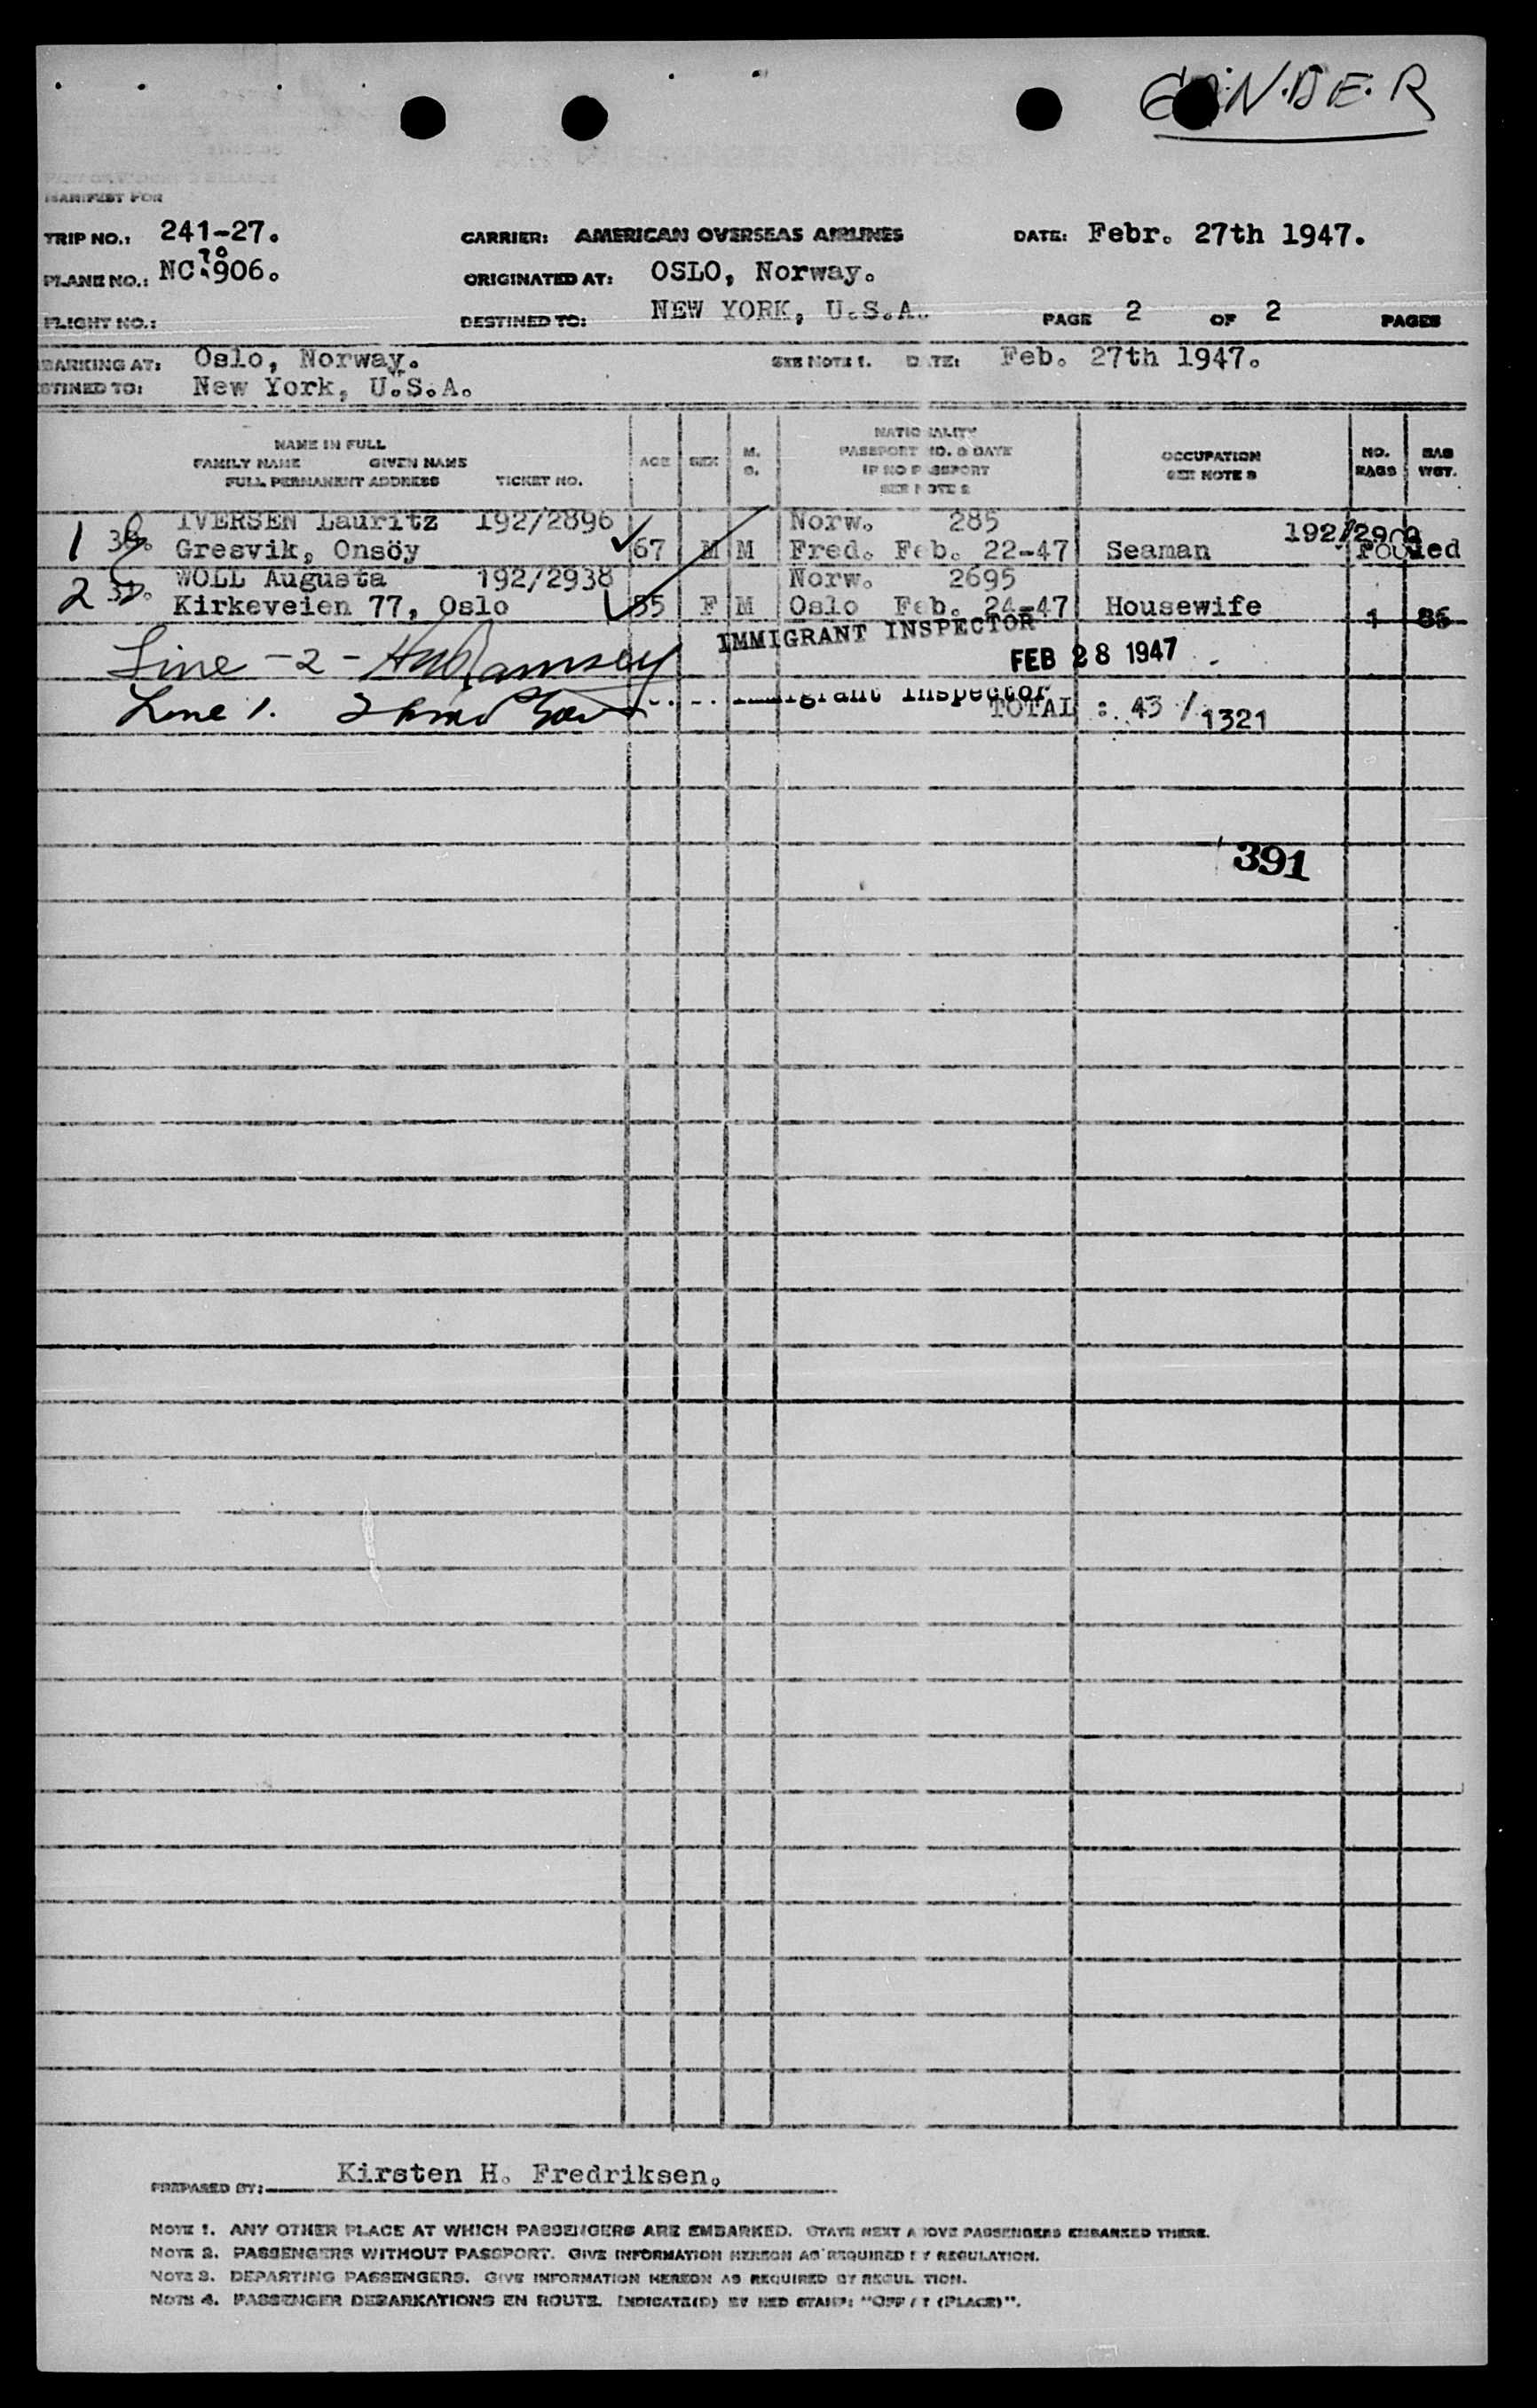 MANIFEST FOR
TRIP NO.: 241-27. CARRIER: AMERICAN OVERSEAS AIRLINES DATE: Febr. 27th 1947.
PLANE NO.: NC 906. ORIGINATED AT: OSLO, Norway.
FLIGHT NO.: DESTINED TO: NEW YORK, U.S.A. PAGE 2 OF 2 PAGES
BARKING AT: Oslo, Norway. SEE NOTE 1. DATE: Feb. 27th 1947.
STINED TO: New York, U.S.A.
NAME IN FULL
FAMILY NAME GIVEN NAME
FULL PERMANENT ADDRESS TICKET NO.
AGE
SEX
M.
S.
NATIONALITY
PASSPORT NO. & DATE
IF NO PASSPORT
SEE NOTE 2
OCCUPATION
SEE NOTE 3
NO.
BAGS
BAG
WGT.
1 IVERSEN Lauritz 192/2896 Norw. 285
Gresvik, Onsöy 67 M M Fred. Feb. 22-47 Seaman Pooled
2 WOLL Augusta 192/2938 Norw. 2695
Kirkeveien 77, Oslo 55 F M Oslo Feb. 24-47 Housewife 1 86
IMMIGRANT INSPECTOR
Line -2-
FEB 28 1947
Line 1. Immigrant Inspector
TOTAL : 43 / 1321
391
PREPARED BY: Kirsten H. Fredriksen.
NOTE 1. ANY OTHER PLACE AT WHICH PASSENGERS ARE EMBARKED. STATE NEXT ABOVE PASSENGERS EMBARKED THERE.
NOTE 2. PASSENGERS WITHOUT PASSPORT. GIVE INFORMATION HEREON AS REQUIRED BY REGULATION.
NOTE 3. DEPARTING PASSENGERS. GIVE INFORMATION HEREON AS REQUIRED BY REGULATION.
NOTE 4. PASSENGER DEBARKATIONS EN ROUTE. INDICATE(D) BY RED STAMP: "OFF AT (PLACE)".